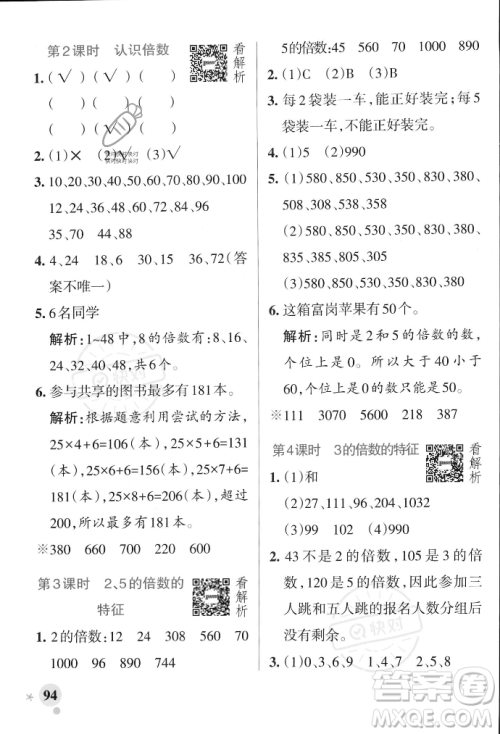 第2课时 认识倍数
看解析
1. (√) (√) ( ) ( )
( ) ( ) (√) ( )
2. (1)× (2)√ (3)√
3. 10、20、30、40、50、60、70、80、90
12、24、36、48、60、72、84、96
35、70 44、88
4. 4、24 18、6 30、15 36、72(答
案不唯一)
5. 6名同学
解析:1~48中,8的倍数有:8、16、
24、32、40、48,共6个。
6. 参与共享的图书最多有181本。
解析:根据题意利用尝试的方法,
25×4+6=106(本),25×5+6=131
(本),25×6+6=156(本),25×7+
6=181(本),25×8+6=206(本),超
过200,所以最多有181本。
※380 660 20 9 500
第3课时 2、5的倍数的
特征
看解析
1. 2的倍数:12 24 308 560 70
1000 86 90 122
94
5的倍数:45 560 70 1000 90
2. (1)C (2)B (3)B
3. 每2袋装一车,能正好装完;每5
袋装一车,不能正好装完。
4. (1)5 (2)990
5. (1)580、850、530、350、380、830、
508、308、358、538
(2)580、850、530、350、380、830、
305、385、805、835
6. 这箱富岗苹果有50个。
解析:同时是2和5的倍数的数,
个位上是0。所以大于40小于
60,个位上是0的数只能是50。
※111 3070 5600 218 387
第4课时 3的倍数的特征
看解析
1. (1)和
(2)9、48、96、204、1032
(3)99 102 990
2. 43不是2的倍数,105是3的倍
数,100是5的倍数。因此参加三
人跳和五人跳的报名人数分组后
没有剩余。
3. (1)0、3、6、9 (2)1、4、7 (3)2、5、8
快对
答案圈
MXQE.COM